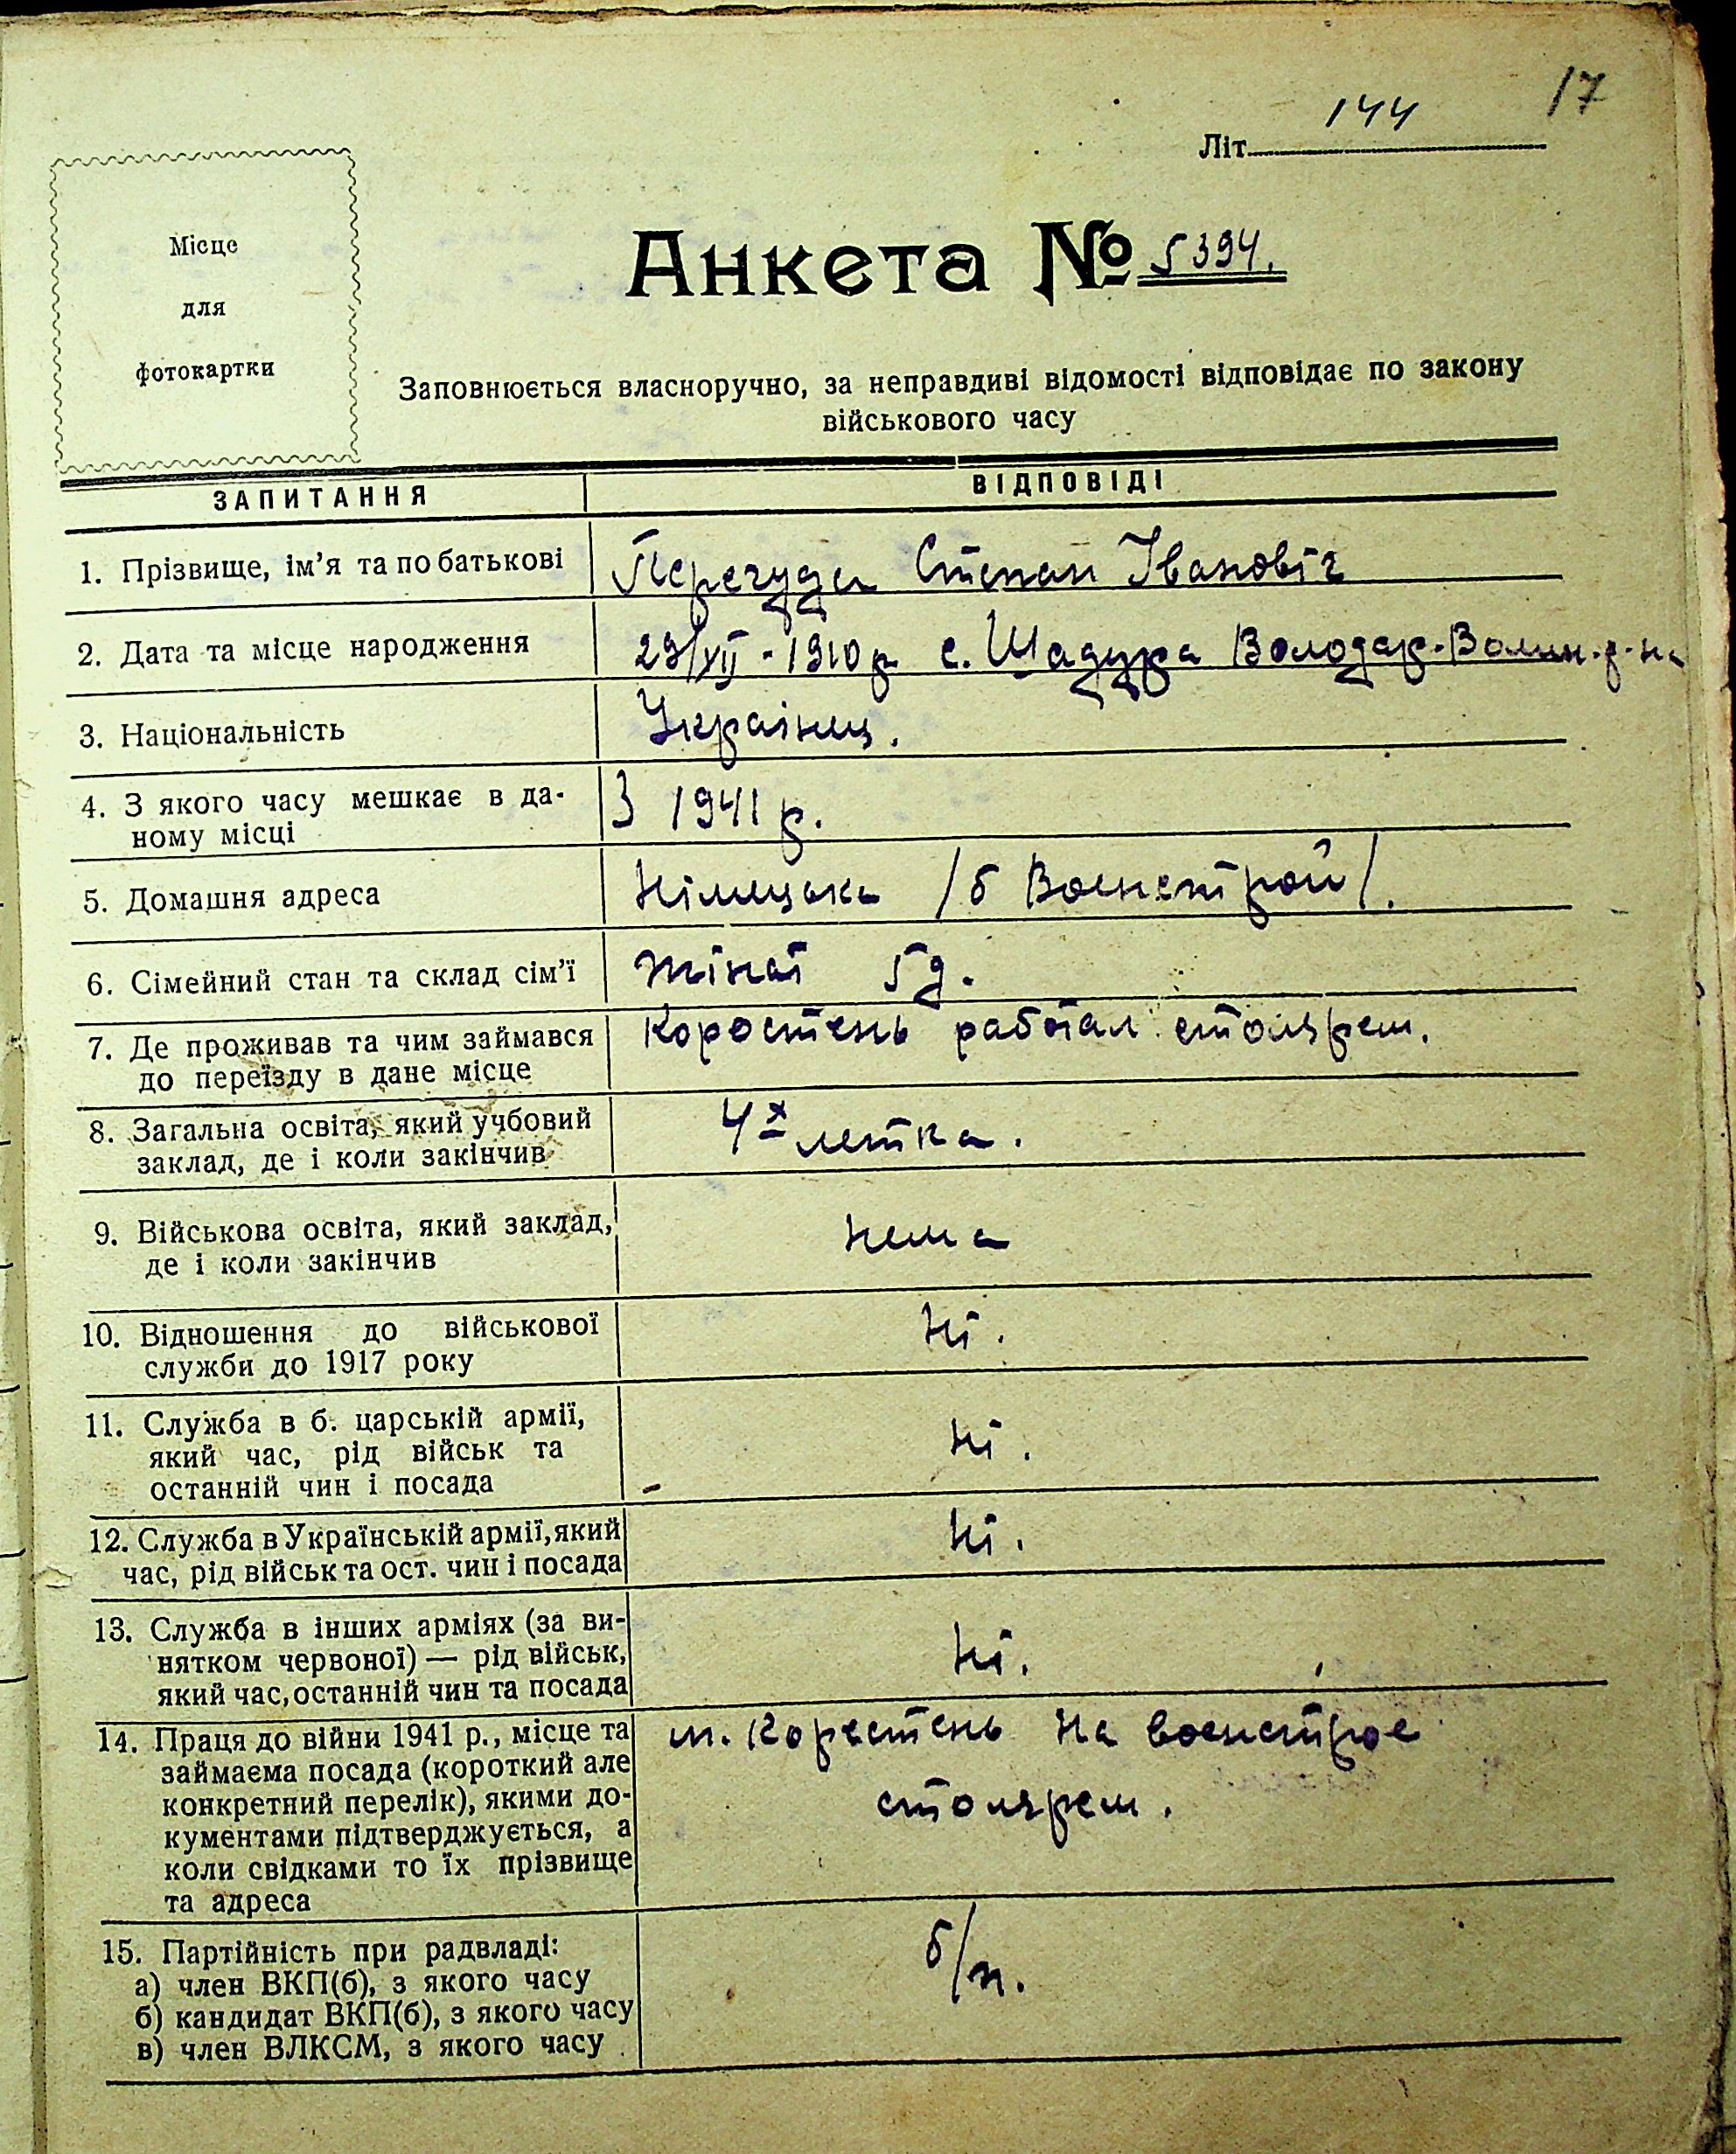 17
Літ. 144
Місце
для
фотокартки
Анкета № 5394.
Заповнюється власноручно, за неправдиві відомості відповідає по закону
військового часу
ЗАПИТАННЯ ВІДПОВІДІ
1. Прізвище, ім'я та по батькові Перегуда Степан Івановіч
2. Дата та місце народження 29/XII - 1910 р. с. Шадура Володар-Волин. р-на
3. Національність Українец.
4. З якого часу мешкає в да-
ному місці З 1941 р.
5. Домашня адреса Німецька /б Военстрой/.
6. Сімейний стан та склад сім'ї жінат 5 д.
7. Де проживав та чим займався
до переїзду в дане місце Коростень работал столярем.
8. Загальна освіта, який учбовий
заклад, де і коли закінчив 4х летка.
9. Військова освіта, який заклад,
де і коли закінчив нема
10. Відношення до військової
служби до 1917 року ні.
11. Служба в б. царській армії,
який час, рід військ та
останній чин і посада ні.
12. Служба в Українській армії, який
час, рід військ та ост. чин і посада ні.
13. Служба в інших арміях (за ви-
нятком червоної) — рід військ,
який час, останній чин та посада ні.
14. Праця до війни 1941 р., місце та м. Коростень на военстрое
займаєма посада (короткий але
конкретний перелік), якими до- столярем.
кументами підтверджується, а
коли свідками то їх прізвище
та адреса
15. Партійність при радвладі:
а) член ВКП(б), з якого часу б/п.
б) кандидат ВКП(б), з якого часу
в) член ВЛКСМ, з якого часу